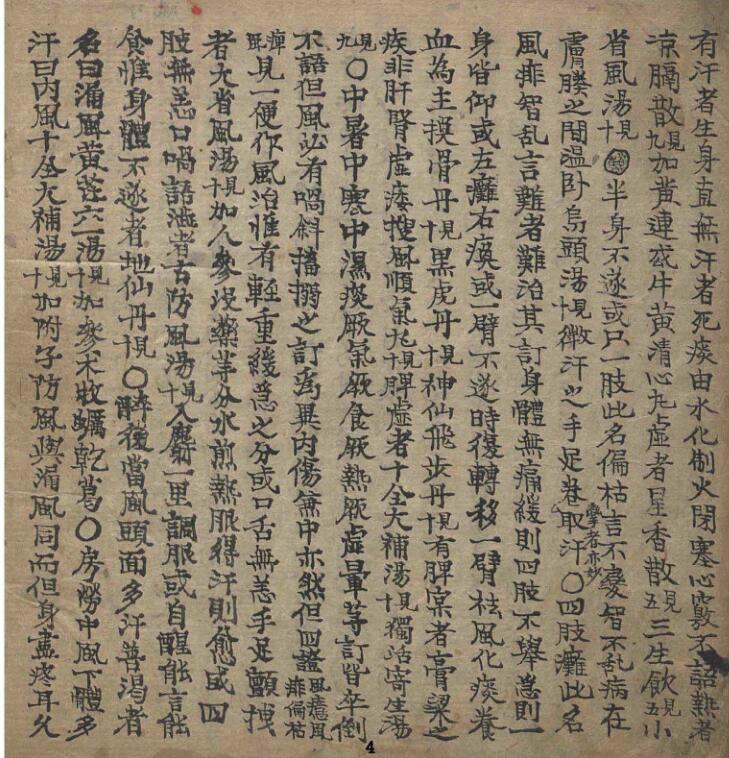 有汗者生身直無汗者死痰由水化制火閉塞心竅不語熱者
凉膈散見九加黄連或牛黄清心丸虚者星香散見五三生飲見五小
省風湯見十半身不遂或只一肢此名偏枯言不變智不乱病在
膚腠之間温卧烏頭湯見十微汗之手足卷取汗孿者亦妙〇四肢癱此名
風痱智乱言難者難治其訂身體無痛緩則四肢不舉急則一
身皆仰或左癱右瘓或一臂不遂時復轉移一臂袪風化痰養
血為主換骨丹見十黒虎丹見十神仙飛步丹見十有脾実者膏梁之
疾非肝腎虚痿搜風順氣丸見十脾虚者十全大補湯見十獨活寄生湯
見九〇中暑中寒中濕痰厥氣厥食厥熱厥虚暈等訂皆卒倒
不語但風必有喎斜搐搦之訂為異内傷無中亦然但四證風癔風痱偏枯
痺見一便作風治惟有輕重緩急之分或口舌無恙手足顫拽
者大省風湯見十加人參没藥半分水煎熱服得汗則愈或四
肢無恙口喎語澁者古防風湯見十入麝一里調服或自醒能言能
食惟身體不遂者地仙丹見十〇醉後當風頭面多汗善渇者
名曰漏風黄芪六一湯見十加參术牡蠣乾葛〇房勞中風下體多
汗曰内風十全大補湯見十加附子防風與漏風同而但身盡疼耳久
4